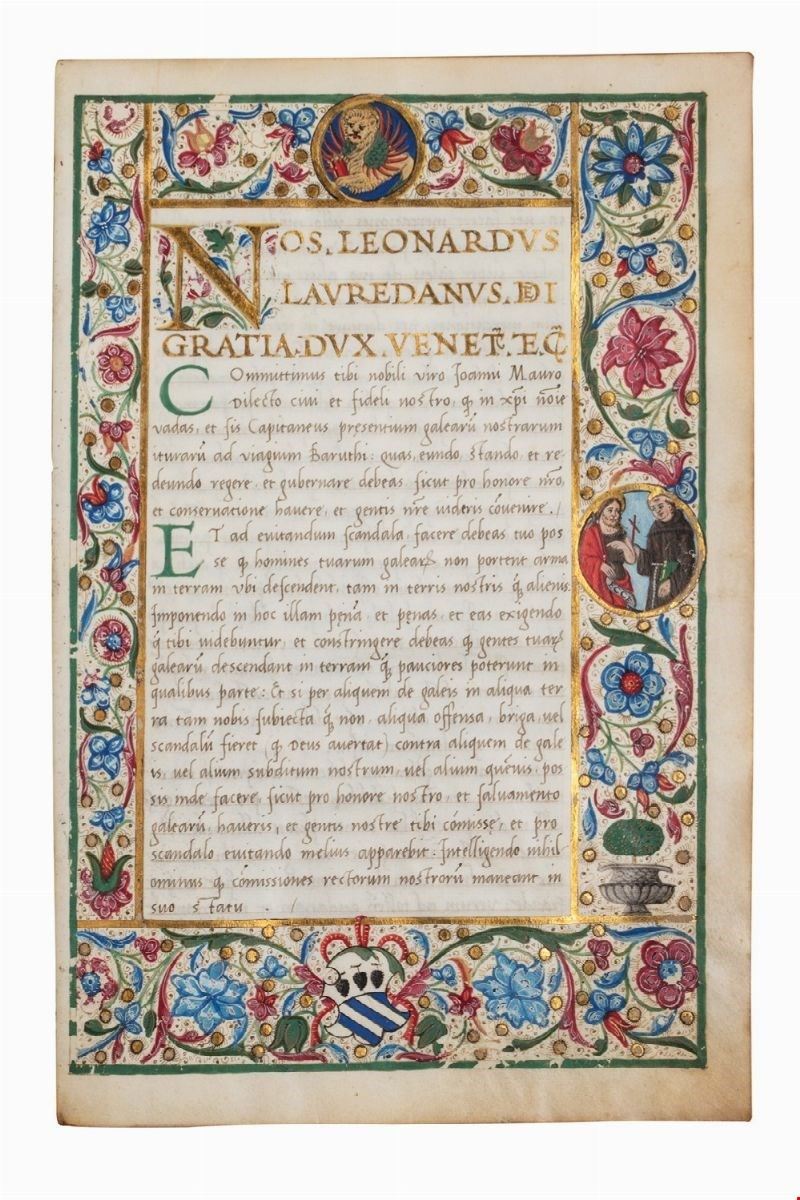 NOS. LEONARDVS
LAVREDANVS. DEI
GRATIA. DVX. VENET̃. E.C̃
COmmittimus tibi nobili viro Joanni Mauro
Dilecto civi et fideli nostro, q̃ in xp̃i nõie
vadas, et sis Capitaneus presentium galearũ nostrarum
iturarũ ad viagium Baruthi: quas, eundo, stando, et re-
deundo regere, et gubernare debeas sicut pro honore nr̃o,
et conservatione havere, et gentis nr̃e videris cõvenire./
ET ad evitandum scandala, facere debeas tuo pos
se q̃ homines tuarum galear̃ non portent arma
in terram vbi descendent, tam in terris nostris q̃ alienis
Imponendo in hoc illam penã, et penas, et eas exigendo
q̃ tibi videbuntur, et constringere debeas q̃ gentes tuar̃
galearũ descendant in terram q̃ pauciores poterunt in
qualibus parte: Et si per aliquem de galeis in aliqua ter
ra tam nobis subiecta q̃ non, aliqua offensa, briga, vel
scandalũ fieret (q̃ Deus avertat) contra aliquem de gale
is, vel alium subditum nostrum, vel alium quẽvis, pos
sis inde facere, sicut pro honore nostro, et salvamento
galearũ, haveris, et gentis nostre tibi cõmisse, et pro
scandalo evitando melius apparebit: Intelligendo nihil
ominus q̃ cõmissiones rectorum nostrorũ maneant in
suo statu.